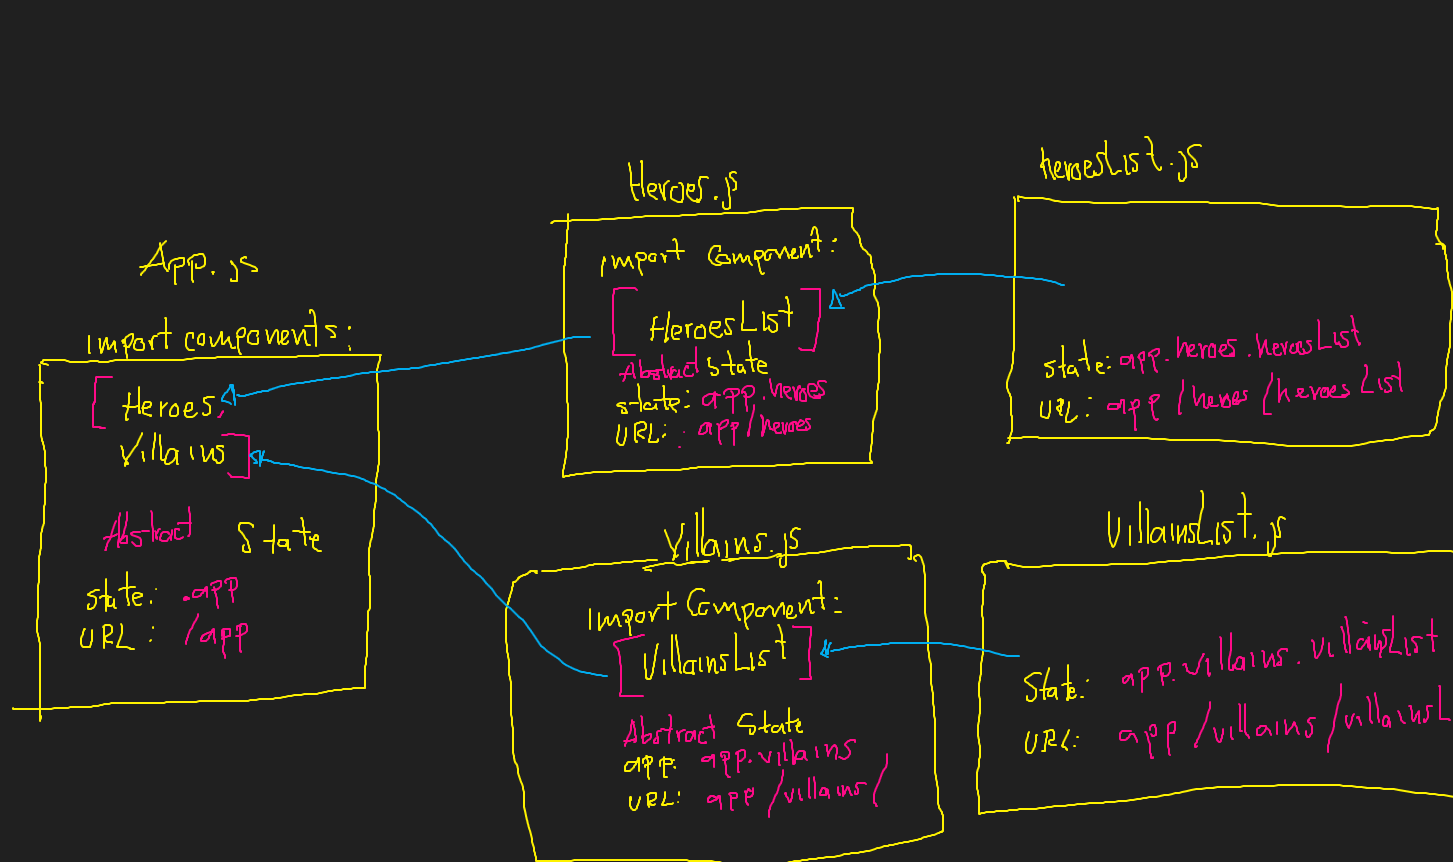 App.js
import components:
[ Heroes,
Villains ]
Abstract State
state: .app
URL: /app
Heroes.js
import Component:
[ HeroesList ]
Abstract State
state: app.heroes
URL: app/heroes
heroesList.js
state: app.heroes.heroesList
URL: app/heroes/heroesList
Villains.js
Import Component:
[ VillainsList ]
Abstract State
app: app.villains
URL: app/villains/
VillainsList.js
State: app.villains.villainsList
URL: app/villains/villainsL